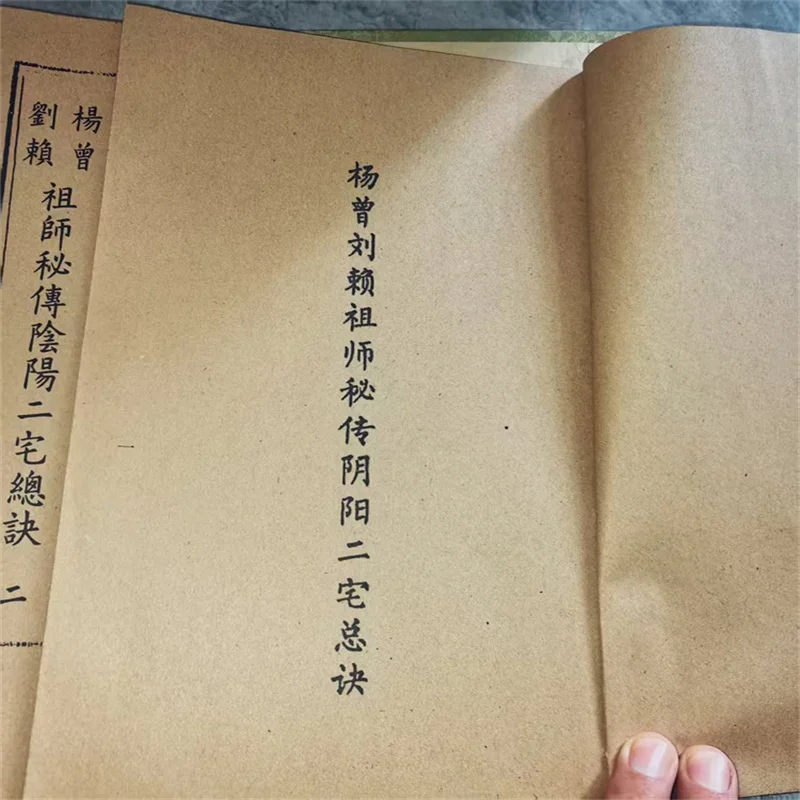 杨曾刘赖祖师秘传阴阳二宅总诀
楊曾
劉賴
祖師秘傳陰陽二宅總訣
二